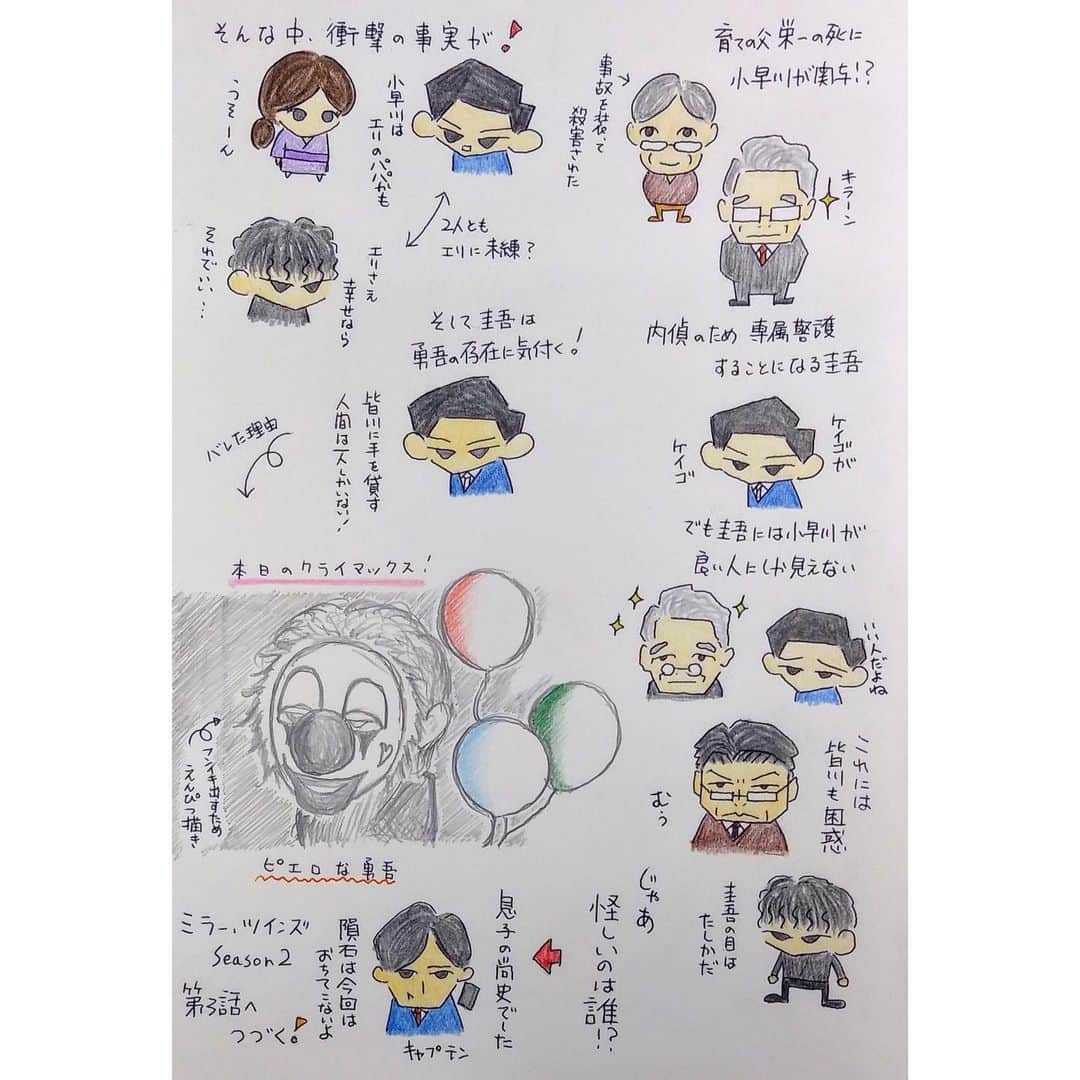 育ての父 栄一の死に
小早川が関与!?
事故を装って
殺害された
キラーン
内偵のため 専属警護
することになる圭吾
ケイゴが
ケイゴ
でも圭吾には小早川が
良い人にしか見えない
いい人だよね
これには
皆川も困惑
むぅ
圭吾の目は
たしかだ
じゃあ
怪しいのは誰!?
息子の尚史でした
キャプテン
隕石は今回は
おちてこないよ
そんな中、衝撃の事実が!
小早川は
エリのパパかも
うそーん
2人とも
エリに未練?
エリさえ
幸せなら
それでいい…
そして圭吾は
勇吾の存在に気付く!
皆川に手を貸す
人間は一人しかいない!
バレた理由
本日のクライマックス!
フンイキ出すため
えんぴつ描き
ピエロな勇吾
ミラー・ツインズ
Season2
第3話へ
つづく!